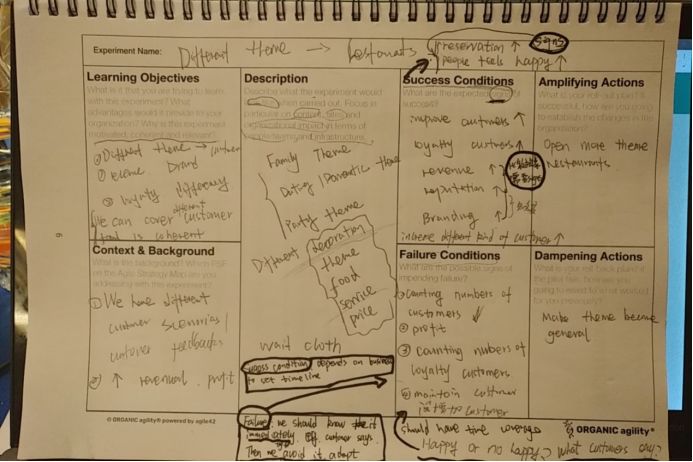 Experiment Name: Different theme → Restaurants
reservation ↑
people feels happy ↑
Learning Objectives
What is it that you are trying to learn
with this experiment? What
advantages would it provide to your
organization? Why is this experiment
motivated, coherent and relevant?
① Different theme → customer
② theme brand
③ loyalty
We can cover different customer
that is coherent
Context & Background
What is the background? Which
on the Agile Strategy Map are you
addressing with this experiment?
① We have different
customer scenarios /
customer feedbacks
② ↑ profit
Description
Describe what the experiment would
when carried out. Focus in
particular on content,
organisational impact in terms of
and infrastructure.
Family Theme
Dating / Romantic theme
Party theme
Different decoration
theme
food
service
price
cloth
success condition depends on business
to set timeline
Failure: we should know the if
immediately off customer says.
Then we avoid it, adapt
Success Conditions
What are the expected
success?
improve customers ↑
loyalty customers ↑
revenue ↑
reputation ↑
Branding ↑
increase different kind of customer ↑
Failure Conditions
What are the possible signs of
impending failure?
① counting numbers of
customers
② profit
③ counting numbers of
loyalty customers
④ maintain customer
customer
should have time
Happy or no happy? What customers say?
Amplifying Actions
What is your rollout plan? If
successful, how are you going
to establish the changes in the
organisation?
Open more theme
restaurants
Dampening Actions
What is your roll back plan if
the pilot fails, how are you
going to what worked for
you previously?
Make theme become
general
© ORGANIC agility® powered by agile42
ORGANIC agility®
6